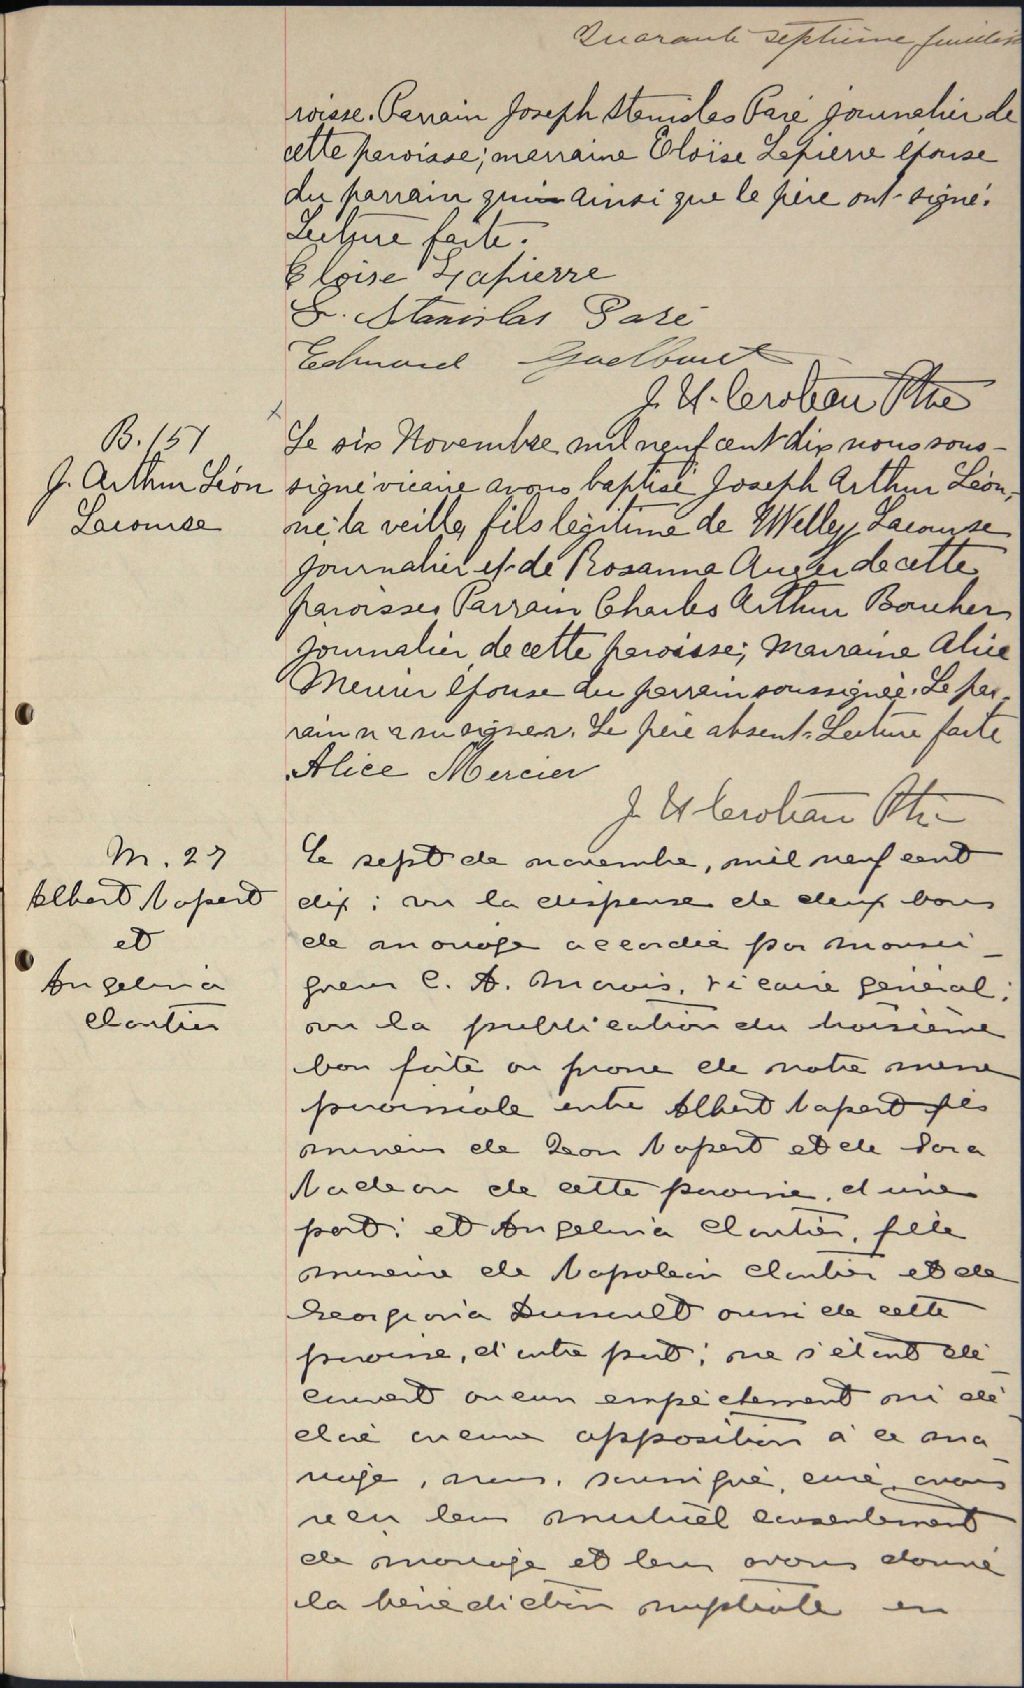 Quarante septième feuillet
roisse. Parrain Joseph Stanislas Paré journalier de
cette paroisse; marraine Eloïse Lapierre épouse
du parrain qui ainsi que le père ont signé.
Lecture faite.
Eloise Lapierre
S. Stanislas Paré
Edmond Godbout
J. H. Croteau Ptre
B. 151
J. Arthur Léon
Lacourse
Le six Novembre mil neuf cent dix nous sous-
signé vicaire avons baptisé Joseph Arthur Léon,
né la veille, fils légitime de Welly Lacourse
journalier et de Rosanna Auger de cette
paroisse. Parrain Charles Arthur Boucher
journalier de cette paroisse; marraine Alice
Mercier épouse du parrain soussignée. Le par-
rain n'a su signer. Le père absent. Lecture faite
Alice Mercier
J. H. Croteau Ptre
M. 27
Albert Napert
et
Angelina
Cloutier
Le sept de novembre, mil neuf cent
dix; vu la dispense de deux bans
de mariage accordée par Monsei-
gneur C. A. Marois, vicaire général;
vu la publication du troisième
ban faite au prone de notre messe
paroissiale entre Albert Napert fils
mineur de Léon Napert et de Sara
Nadeau de cette paroisse, d'une
part; et Angelina Cloutier, fille
mineure de Napoléon Cloutier et de
Georgiana Dussault aussi de cette
paroisse, d'autre part; ne s'étant dé-
couvert aucun empêchement ni dé-
claré aucune opposition à ce ma-
riage, nous, soussigné, curé, avons
reçu leur mutuel consentement
de mariage et leur avons donné
la bénédiction nuptiale en